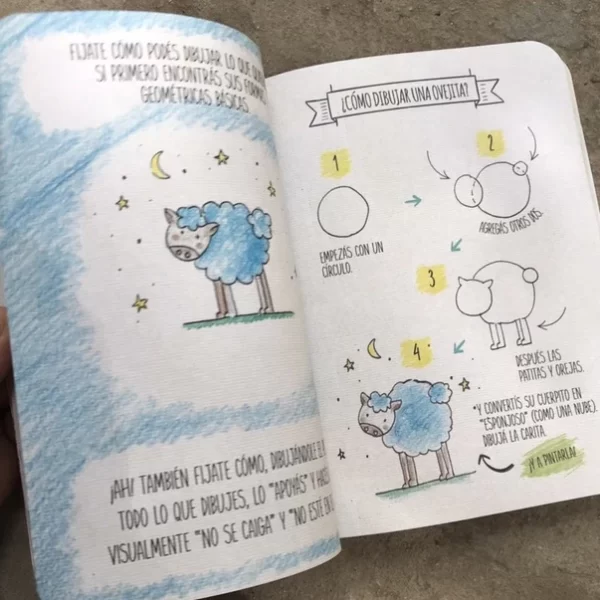 FIJATE CÓMO PODÉS DIBUJAR LO QUE
SI PRIMERO ENCONTRÁS SUS
GEOMÉTRICAS BÁSICAS
¡AH! TAMBIÉN FIJATE CÓMO, DIBUJÁNDOLE EL
TODO LO QUE DIBUJES, LO "APOYÁS" Y
VISUALMENTE "NO SE CAIGA" Y "NO ESTÉ EN
¿CÓMO DIBUJAR UNA OVEJITA?
1
EMPEZÁS CON UN
CÍRCULO.
2
AGREGÁS OTROS DOS.
3
DESPUÉS LAS
PATITAS Y OREJAS.
4
Y CONVERTÍS SU CUERPITO EN
"ESPONJOSO" (COMO UNA NUBE).
DIBUJÁ LA CARITA.
¡Y A PINTARLA!